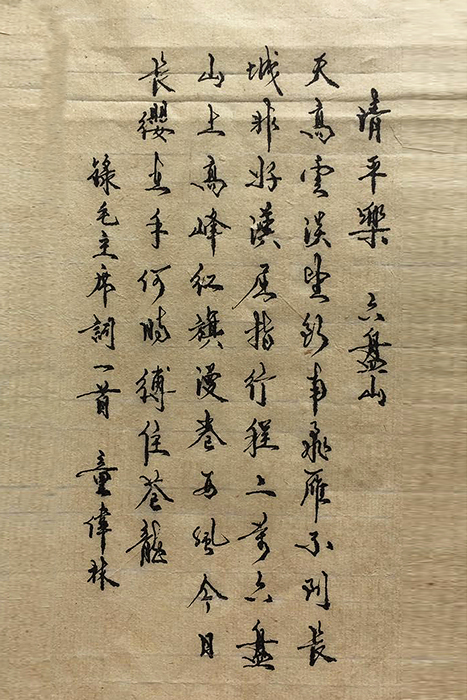 清平樂 六盤山
天高雲淡望斷南飛雁不到長
城非好漢屈指行程二萬六盤
山上高峰紅旗漫卷西風今日
長纓在手何時縛住蒼龍
錄毛主席詞一首 童偉林